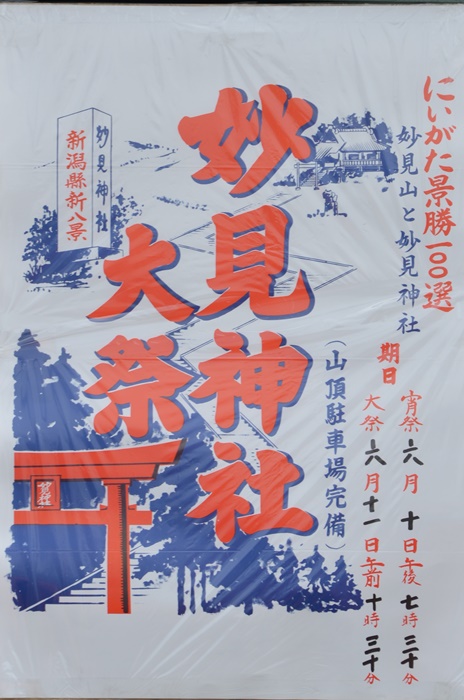 にいがた景勝一〇〇選
妙見山と妙見神社
期日
宵祭 六月十日 午後七時三十分
大祭 六月十一日 午前十時三十分
(山頂駐車場完備)
妙見神社
大祭
妙見神社
新潟縣新八景
妙見社